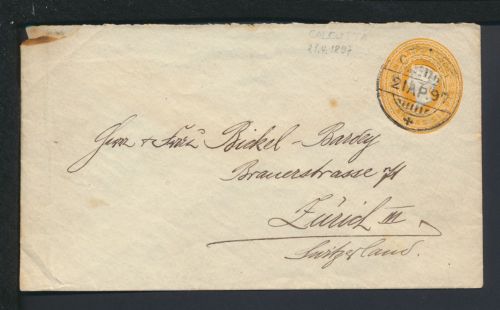 CALCUTTA
21.4.1897
21 AP 97
Herr & Frau Bickel-Bardey
Brauerstrasse
Zürich III
Switzerland.